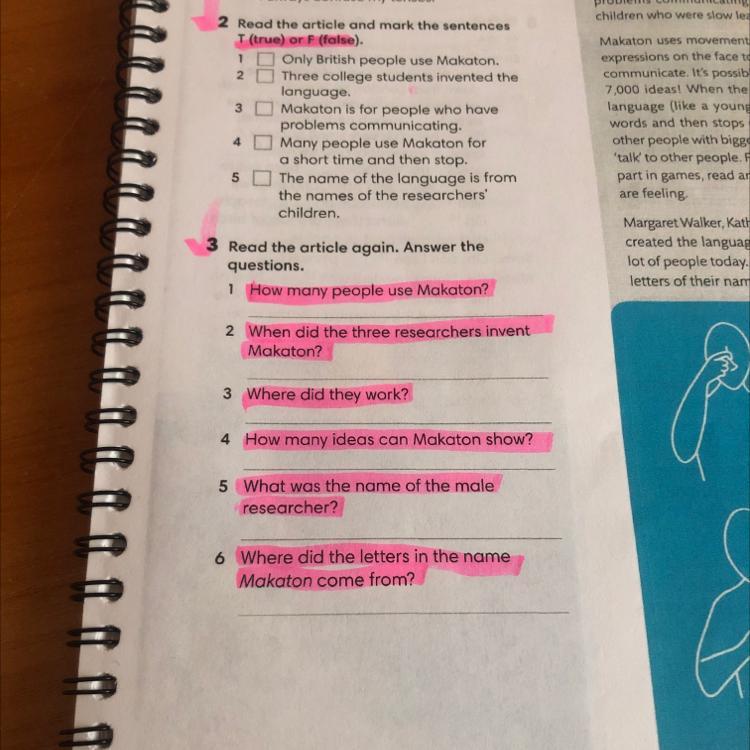 2 Read the article and mark the sentences
T (true) or F (false).
1 Only British people use Makaton.
2 Three college students invented the
language.
3 Makaton is for people who have
problems communicating.
4 Many people use Makaton for
a short time and then stop.
5 The name of the language is from
the names of the researchers'
children.
3 Read the article again. Answer the
questions.
1 How many people use Makaton?
2 When did the three researchers invent
Makaton?
3 Where did they work?
4 How many ideas can Makaton show?
5 What was the name of the male
researcher?
6 Where did the letters in the name
Makaton come from?
children who were slow
Makaton uses movement
expressions on the face
communicate. It's
7,000 ideas! When the
language (like a young
words and then stops
other people with
'talk' to other people.
part in games, read
are feeling.
Margaret Walker,
created the
lot of people today.
letters of their